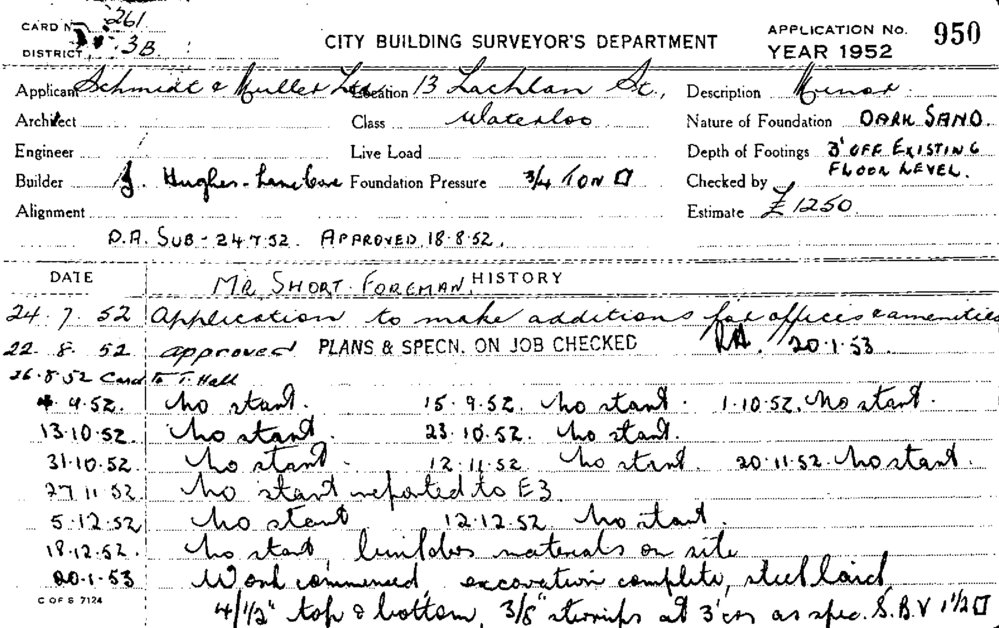 CARD No. 261
DISTRICT 3B
CITY BUILDING SURVEYOR'S DEPARTMENT
APPLICATION No. 950
YEAR 1952
Applicant Schmidt & Muller Location 13 Lachlan St., Description Minor
Architect Class Waterloo Nature of Foundation DARK SAND.
Engineer Live Load Depth of Footings 3' OFF EXISTING FLOOR LEVEL.
Builder J. Hughes - Lane Cove Foundation Pressure 3/4 TON □ Checked by
Alignment Estimate £1250
D.A. SUB - 24.7.52. APPROVED 18.8.52.
DATE MR SHORT FOREMAN. HISTORY
24.7.52 Application to make additions for offices & amenities
22.8.52 approved PLANS & SPECN. ON JOB CHECKED 20.1.53.
26.8.52 Card to T. Hall
4.9.52. No start. 15.9.52. No start. 1.10.52. No start.
13.10.52. No start. 23.10.52. No start.
31.10.52 No start. 12.11.52 No start. 20.11.52. No start.
27.11.52. No start reported to E3.
5.12.52 No start 12.12.52. No start.
18.12.52. No start, builders materials on site
20.1.53 Work commenced, excavation complete, steel laid
4/1/2" top & bottom, 3/8" stirrups at 3' crs as spec. S.B.V 1 1/2 □
C OF S 7124